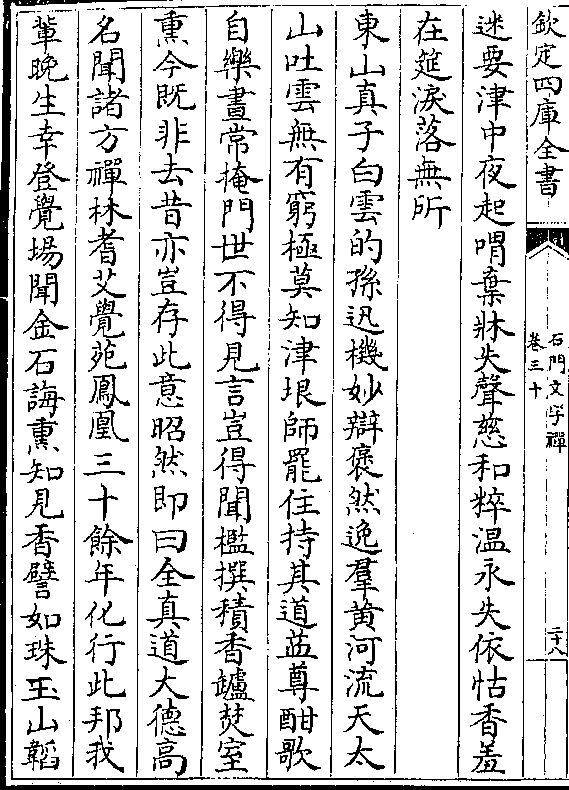 欽定四庫全書
石門文字禪
卷三十
二十八
迷要津中夜起喟棄牀失聲慈和粹温永失依怙香羞
在筵淚落無所
東山真子白雲的孫迅機妙辯褎然逸羣黄河流天太
山吐雲無有窮極莫知津垠師罷住持其道益尊酣歌
自樂晝常掩門世不得見言豈得聞檻撰積香罏焚室
熏今既非去昔亦豈存此意昭然即曰全真道大德高
名聞諸方禪林耆艾覺苑鳳凰三十餘年化行此邦我
輩晚生幸登覺場聞金石誨熏知見香譬如珠玉山韜